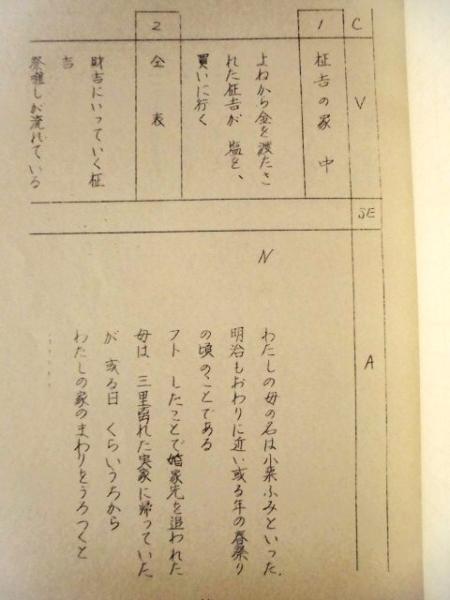 C
V
SE
A
1
柾吉の家 中
よねから金を渡たさ
れた柾吉が 塩を、
買いに行く
2
仝 表
財吉にいっていく柾
吉
祭囃しが流れている
N
わたしの母の名は小来ふみといった.
明治もおわりに近い或る年の春祭り
の頃のことである
フト したことで婚家先を追われた
母は 三里離れた実家に帰っていた
が 或る日 くらいうちから
わたしの家のまわりをうろつくと